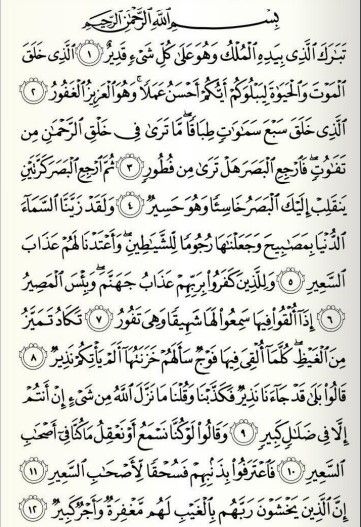 بِسْمِ اللَّهِ الرَّحْمَٰنِ الرَّحِيمِ
تَبَارَكَ الَّذِي بِيَدِهِ الْمُلْكُ وَهُوَ عَلَىٰ كُلِّ شَيْءٍ قَدِيرٌ ١ الَّذِي خَلَقَ
الْمَوْتَ وَالْحَيَاةَ لِيَبْلُوَكُمْ أَيُّكُمْ أَحْسَنُ عَمَلًا ۚ وَهُوَ الْعَزِيزُ الْغَفُورُ ٢
الَّذِي خَلَقَ سَبْعَ سَمَاوَاتٍ طِبَاقًا ۖ مَّا تَرَىٰ فِي خَلْقِ الرَّحْمَٰنِ مِن
تَفَاوُتٍ ۖ فَارْجِعِ الْبَصَرَ هَلْ تَرَىٰ مِن فُطُورٍ ٣ ثُمَّ ارْجِعِ الْبَصَرَ كَرَّتَيْنِ
يَنقَلِبْ إِلَيْكَ الْبَصَرُ خَاسِئًا وَهُوَ حَسِيرٌ ٤ وَلَقَدْ زَيَّنَّا السَّمَاءَ
الدُّنْيَا بِمَصَابِيحَ وَجَعَلْنَاهَا رُجُومًا لِّلشَّيَاطِينِ ۖ وَأَعْتَدْنَا لَهُمْ عَذَابَ
السَّعِيرِ ٥ وَلِلَّذِينَ كَفَرُوا بِرَبِّهِمْ عَذَابُ جَهَنَّمَ ۖ وَبِئْسَ الْمَصِيرُ
٦ إِذَا أُلْقُوا فِيهَا سَمِعُوا لَهَا شَهِيقًا وَهِيَ تَفُورُ ٧ تَكَادُ تَمَيَّزُ
مِنَ الْغَيْظِ ۖ كُلَّمَا أُلْقِيَ فِيهَا فَوْجٌ سَأَلَهُمْ خَزَنَتُهَا أَلَمْ يَأْتِكُمْ نَذِيرٌ ٨
قَالُوا بَلَىٰ قَدْ جَاءَنَا نَذِيرٌ فَكَذَّبْنَا وَقُلْنَا مَا نَزَّلَ اللَّهُ مِن شَيْءٍ إِنْ أَنتُمْ
إِلَّا فِي ضَلَالٍ كَبِيرٍ ٩ وَقَالُوا لَوْ كُنَّا نَسْمَعُ أَوْ نَعْقِلُ مَا كُنَّا فِي أَصْحَابِ
السَّعِيرِ ١٠ فَاعْتَرَفُوا بِذَنبِهِمْ فَسُحْقًا لِّأَصْحَابِ السَّعِيرِ ١١
إِنَّ الَّذِينَ يَخْشَوْنَ رَبَّهُم بِالْغَيْبِ لَهُم مَّغْفِرَةٌ وَأَجْرٌ كَبِيرٌ ١٢